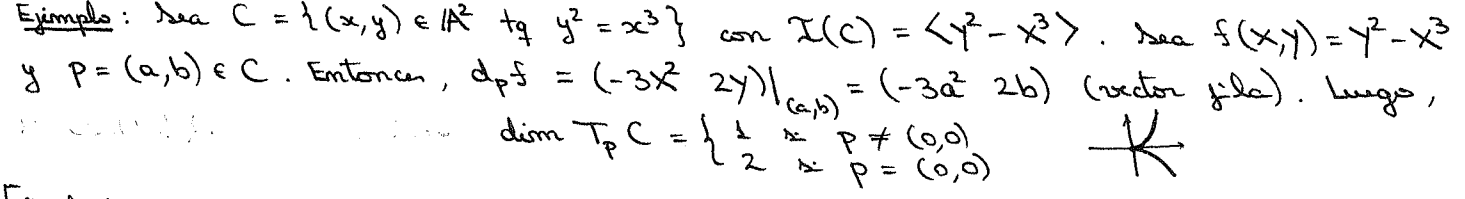 Ejemplo: Sea C = {(x,y) ∈ 𝔸² tq y² = x³} con I(C) = <Y² - X³>. Sea f(X,Y) = Y² - X³
y p = (a,b) ∈ C. Entonces, dₚf = (-3X² 2Y)|₍ₐ,b₎ = (-3a² 2b) (vector fila). Luego,
dim TₚC = { 1 si p ≠ (0,0)
2 si p = (0,0)